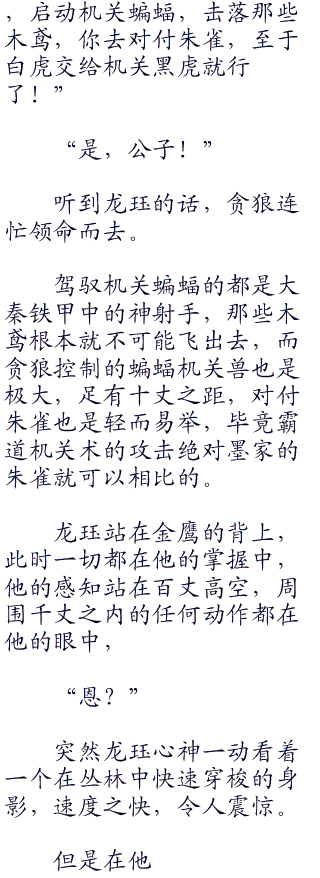 ，启动机关蝙蝠，击落那些
木鸢，你去对付朱雀，至于
白虎交给机关黑虎就行
了！”
“是，公子！”
听到龙珏的话，贪狼连
忙领命而去。
驾驭机关蝙蝠的都是大
秦铁甲中的神射手，那些木
鸢根本就不可能飞出去，而
贪狼控制的蝙蝠机关兽也是
极大，足有十丈之距，对付
朱雀也是轻而易举，毕竟霸
道机关术的攻击绝对墨家的
朱雀就可以相比的。
龙珏站在金鹰的背上，
此时一切都在他的掌握中，
他的感知站在百丈高空，周
围千丈之内的任何动作都在
他的眼中，
“恩？”
突然龙珏心神一动看着
一个在丛林中快速穿梭的身
影，速度之快，令人震惊。
但是在他